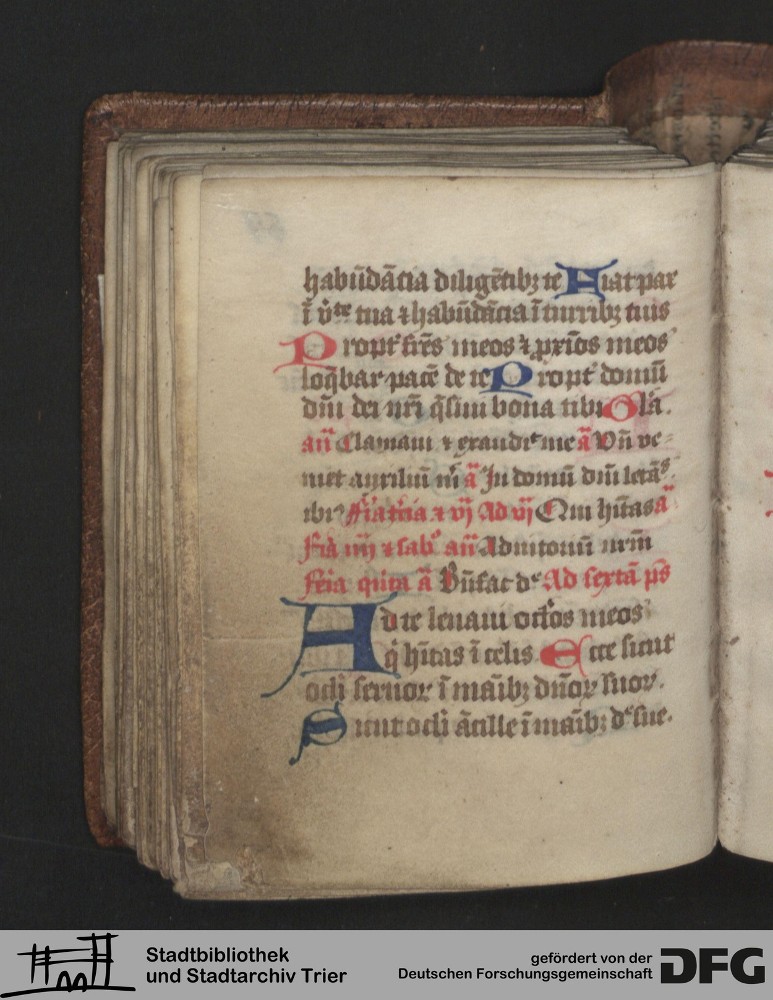 habūdācia diligētibꝫ te Fiat pax
ī v̓te tua ⁊ habūdācia ī turribꝫ tuis
Propt̓ fr̄es meos ⁊ ꝓxīos meos
loq̄bar pacē de te Propt̓ domū
dn̄i dei nr̄i q̄siui bona tibi Gla.
an̄ Clamaui ⁊ exaudi me a Vn̄ ve-
niet auxiliū m̄ a In domū dn̄i letās
ibi Fīa t̓cia ⁊ vj Ad vj Qui hītas a
Fīa iiij ⁊ sabō an̄ Adiutoriū nr̄m
Feīa quīta ā Bn̄fac d̓ Ad sextā ps̄
Ad te leuaui oc̄los meos
q̓ hītas ī celis Ecce sicut
ocli seruoꝝ ī maībꝫ dn̄oꝝ suoꝝ.
Sicut ocli ācille ī maībꝫ d̓ sue.
Stadtbibliothek
und Stadtarchiv Trier
gefördert von der
Deutschen Forschungsgemeinschaft
DFG